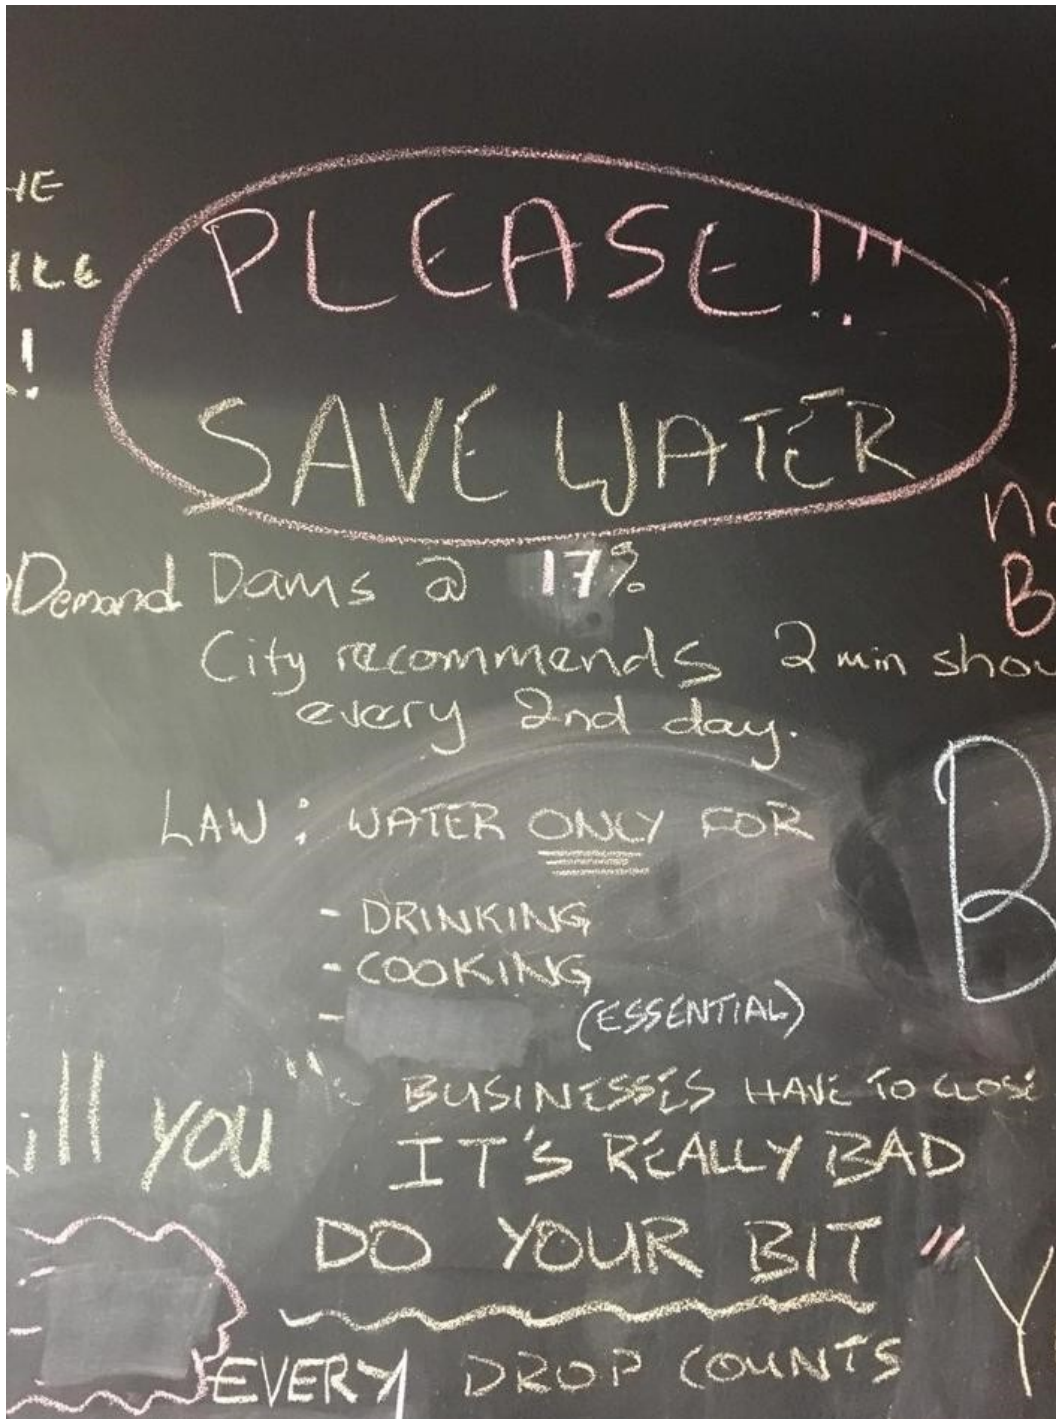 HE
PLEASE!!!
!
SAVE WATER
Demand Dams @ 17%
City recommends 2 min
every 2nd day.
B
LAW: WATER ONLY FOR
B
- DRINKING
- COOKING
-
(ESSENTIAL)
ill you"
BUSINESSES HAVE TO CLOSE
IT'S REALLY BAD
DO YOUR BIT
"Y
EVERY DROP COUNTS